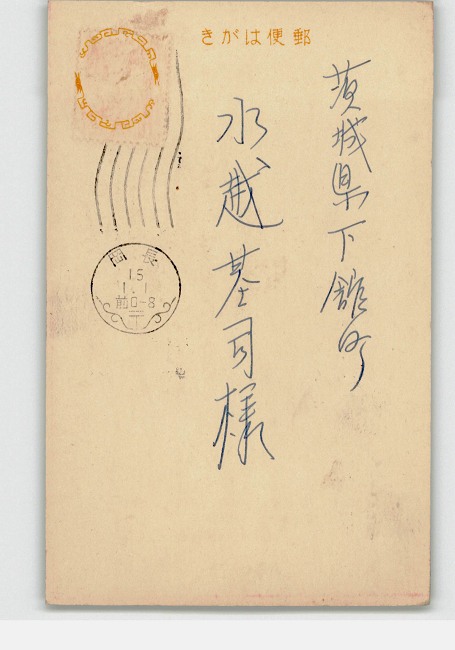 きがは便郵
茨城県下館町
水越基司様
岡長
15
1.1
前0-8
〒